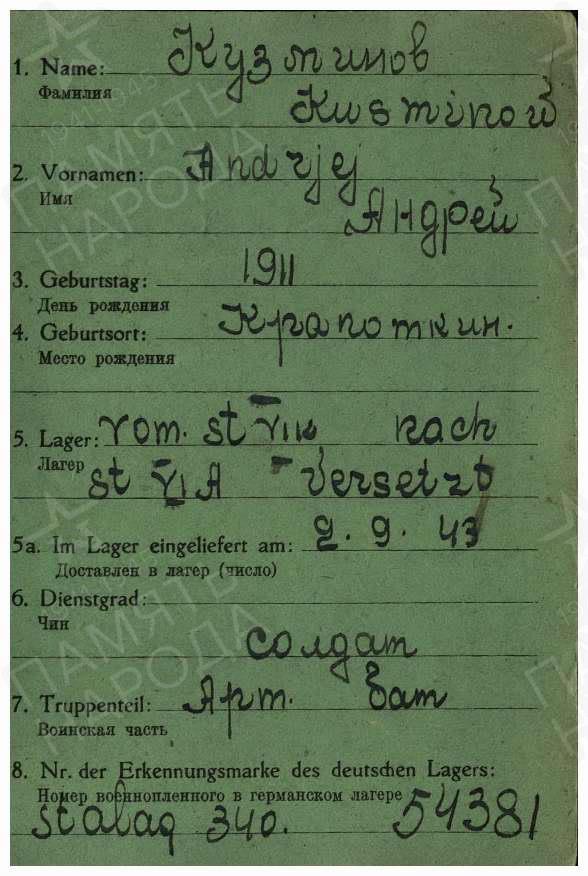 1. Name: Кузминов
Фамилия
Kusminow
2. Vornamen: Andrjej
Имя
Андрей
3. Geburtstag: 1911
День рождения
4. Geburtsort: Крапоткин.
Место рождения
5. Lager: vom. st VIK nach
Лагер
st VI A versetzt
5a. Im Lager eingeliefert am: 2. 9. 43
Доставлен в лагер (число)
6. Dienstgrad:
Чин
солдат
7. Truppenteil: Арт. бат
Воинская часть
8. Nr. der Erkennungsmarke des deutschen Lagers:
Номер военнопленного в германском лагере
stalag 340. 54381
ПАМЯТЬ
НАРОДА
1941 1945